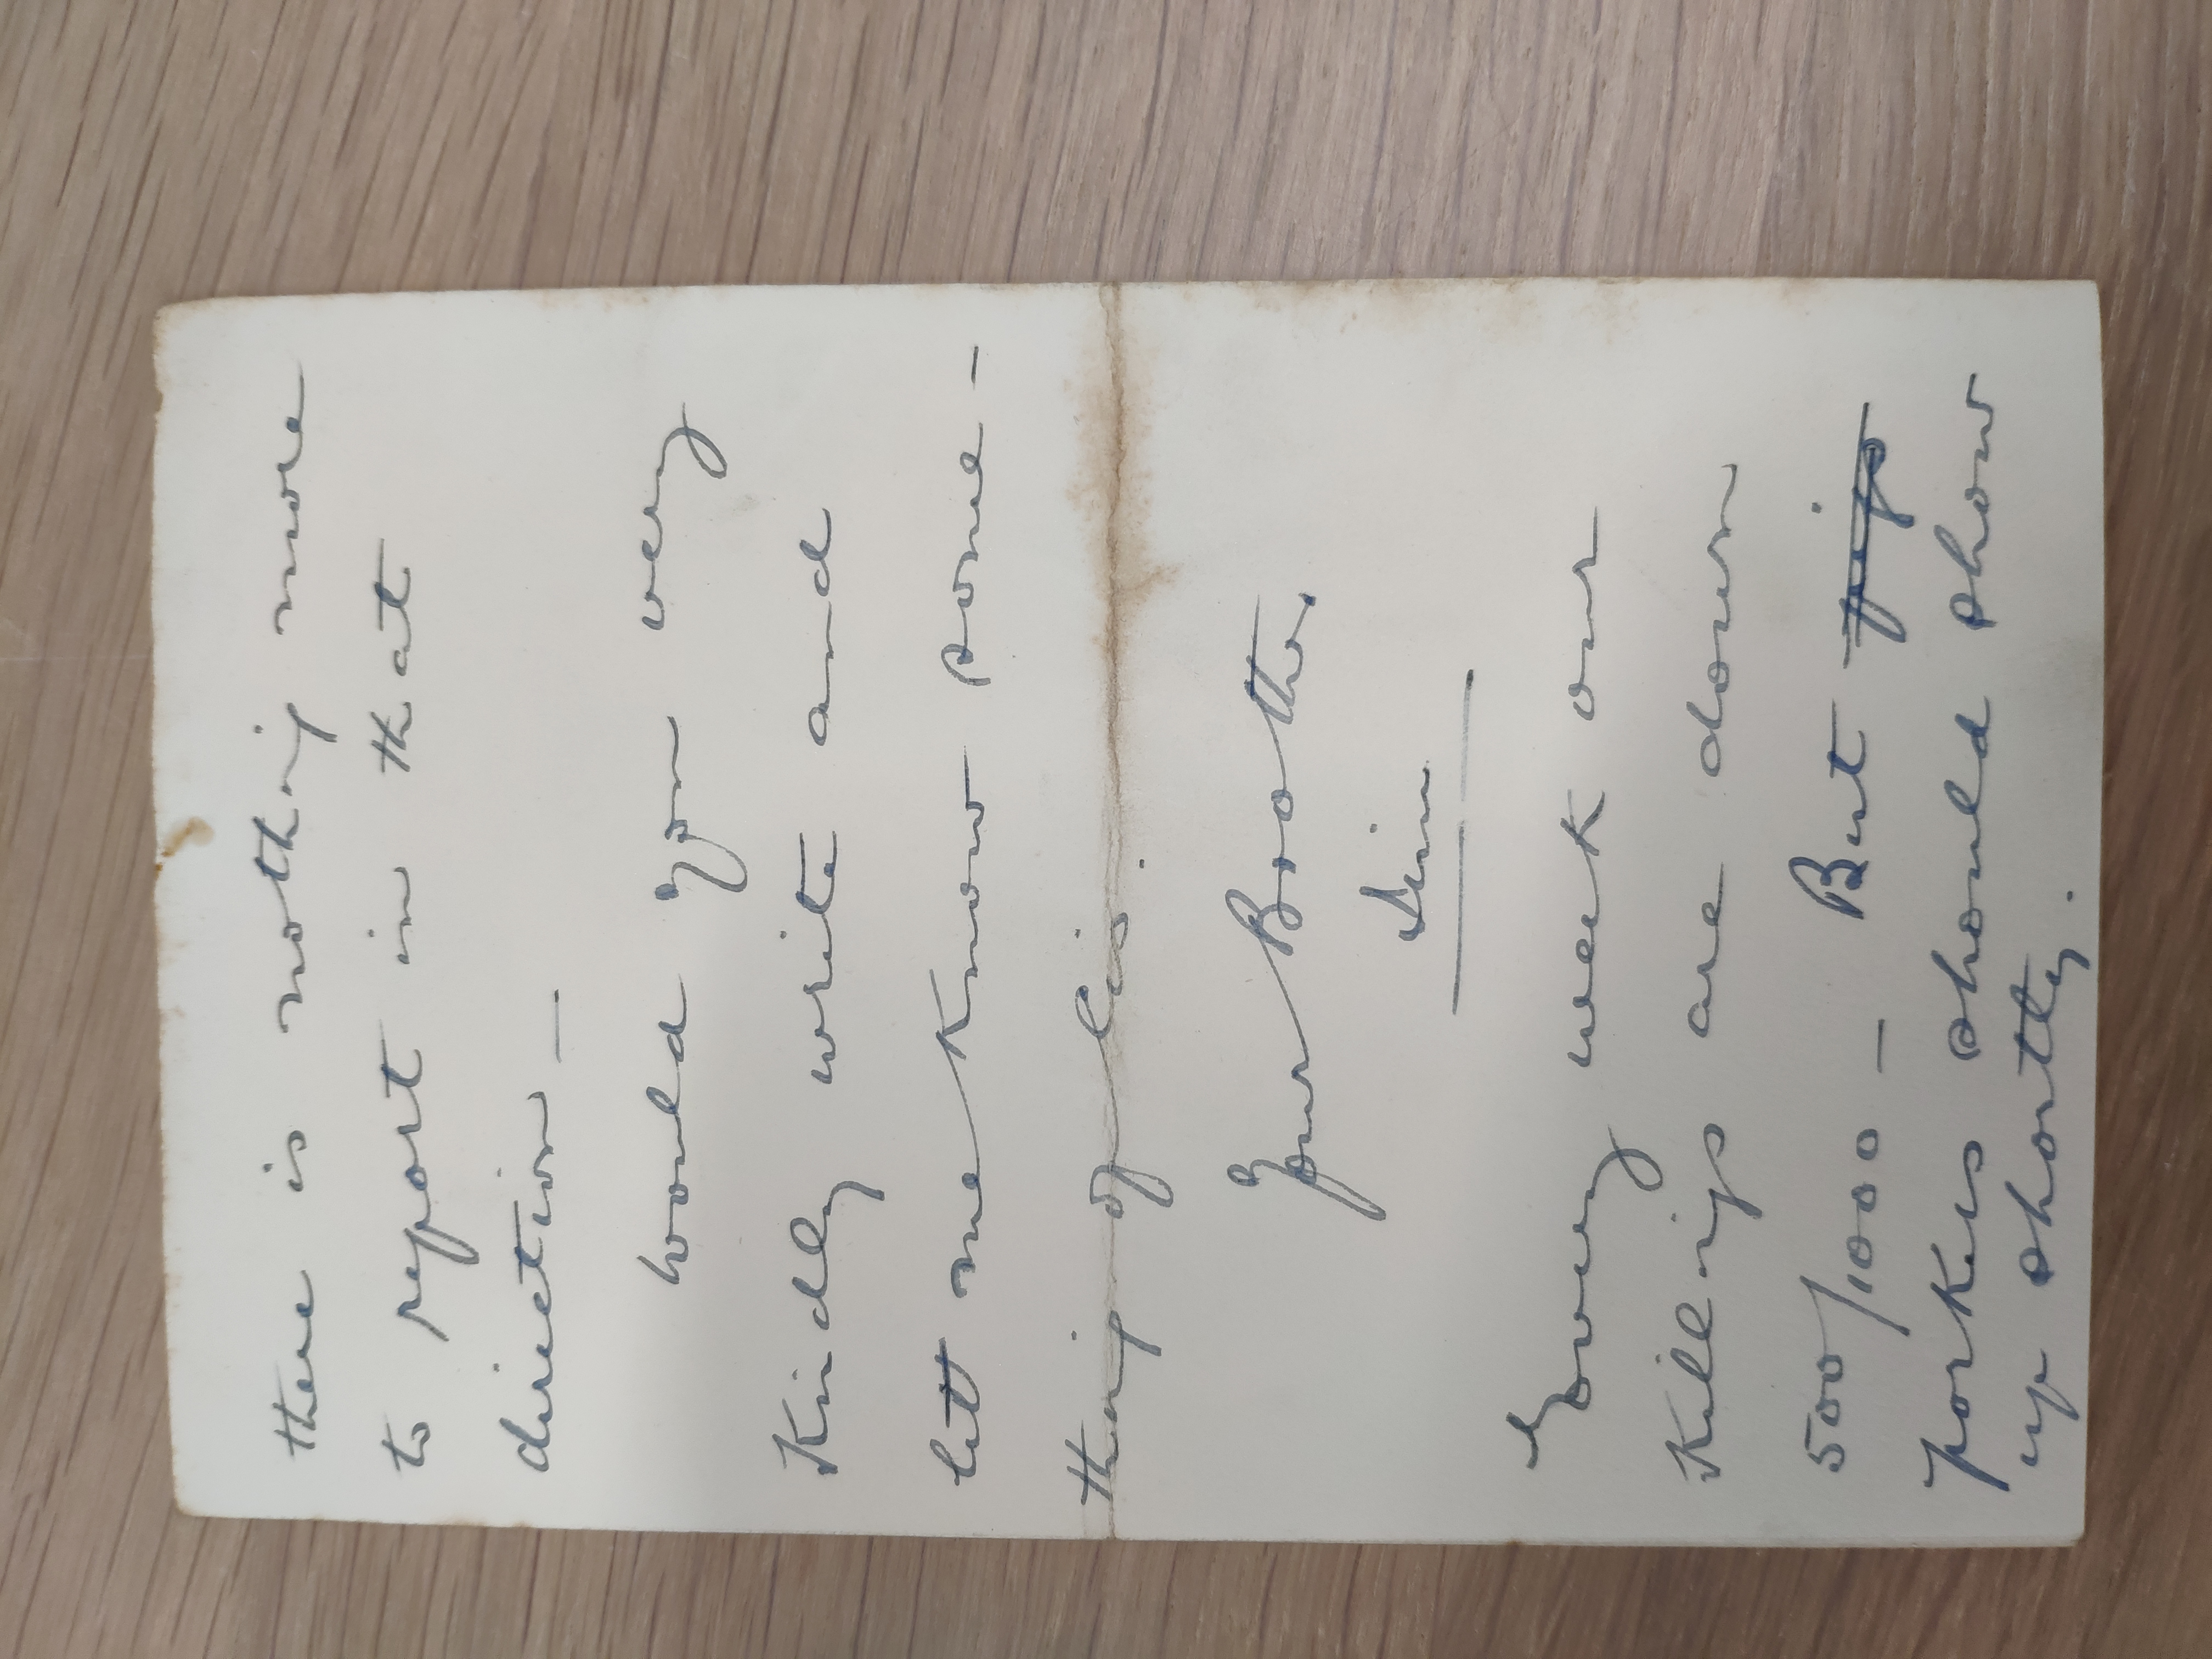 there is nothing more
to report in that
direction —
Would you very
Kindly write and
let me know some-
thing of his.
Your Brother,
Jim
Every week our
Killings are down
500/1000 — But pigs
porkers should show
up shortly.